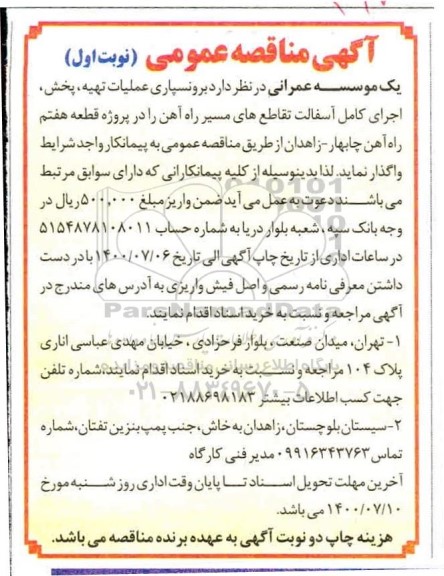 آگهی مناقصه عمومی (نوبت اول)
یک موسسه عمرانی در نظر دارد برونسپاری عملیات تهیه، پخش،
اجرای کامل آسفالت تقاطع های مسیر راه آهن را در پروژه قطعه هفتم
راه آهن چابهار-زاهدان از طریق مناقصه عمومی به پیمانکار واجد شرایط
واگذار نماید. لذا بدینوسیله از کلیه پیمانکارانی که دارای سوابق مرتبط
می باشند دعوت به عمل می آید ضمن واریز مبلغ ۵۰۰,۰۰۰ ریال در
وجه بانک سپه، شعبه بلوار دریا به شماره حساب ۵۱۵۴۸۷۸۱۰۸۰۱۱
در ساعات اداری از تاریخ چاپ آگهی الی تاریخ ۱۴۰۰/۰۷/۰۶ با در دست
داشتن معرفی نامه رسمی و اصل فیش واریزی به آدرس های مندرج در
آگهی مراجعه و نسبت به خرید اسناد اقدام نمایند.
۱- تهران، میدان صنعت، بلوار فرحزادی، خیابان مهدی عباسی اناری
پلاک ۱۰۴ مراجعه و نسبت به خرید اسناد اقدام نمایند، شماره تلفن
جهت کسب اطلاعات بیشتر ۰۲۱۸۸۶۹۸۱۸۳
۲- سیستان بلوچستان، زاهدان به خاش، جنب پمپ بنزین تفتان، شماره
تماس ۰۹۹۱۶۳۴۳۷۶۳ مدیر فنی کارگاه
آخرین مهلت تحویل اسناد تا پایان وقت اداری روز شنبه مورخ
۱۴۰۰/۰۷/۱۰ می باشد.
هزینه چاپ دو نوبت آگهی به عهده برنده مناقصه می باشد.
ParsNamadData
۰۲۱-۸۸۳۴۹۶۷۰-۵